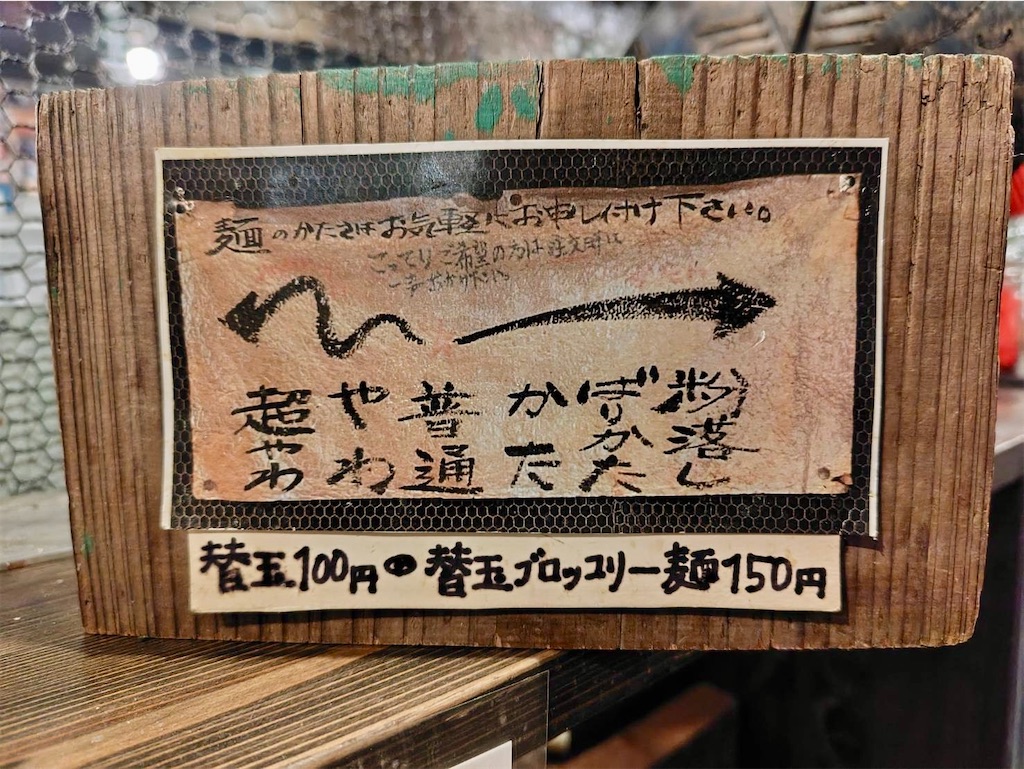 麺のかたさはお気軽にお申し付け下さい。
こってりご希望の方は注文時に
一声おかけ下さい。
粉落し
ばりかた
かた
普通
やわ
超やわ
替玉100円・替玉ブロッコリー麺150円